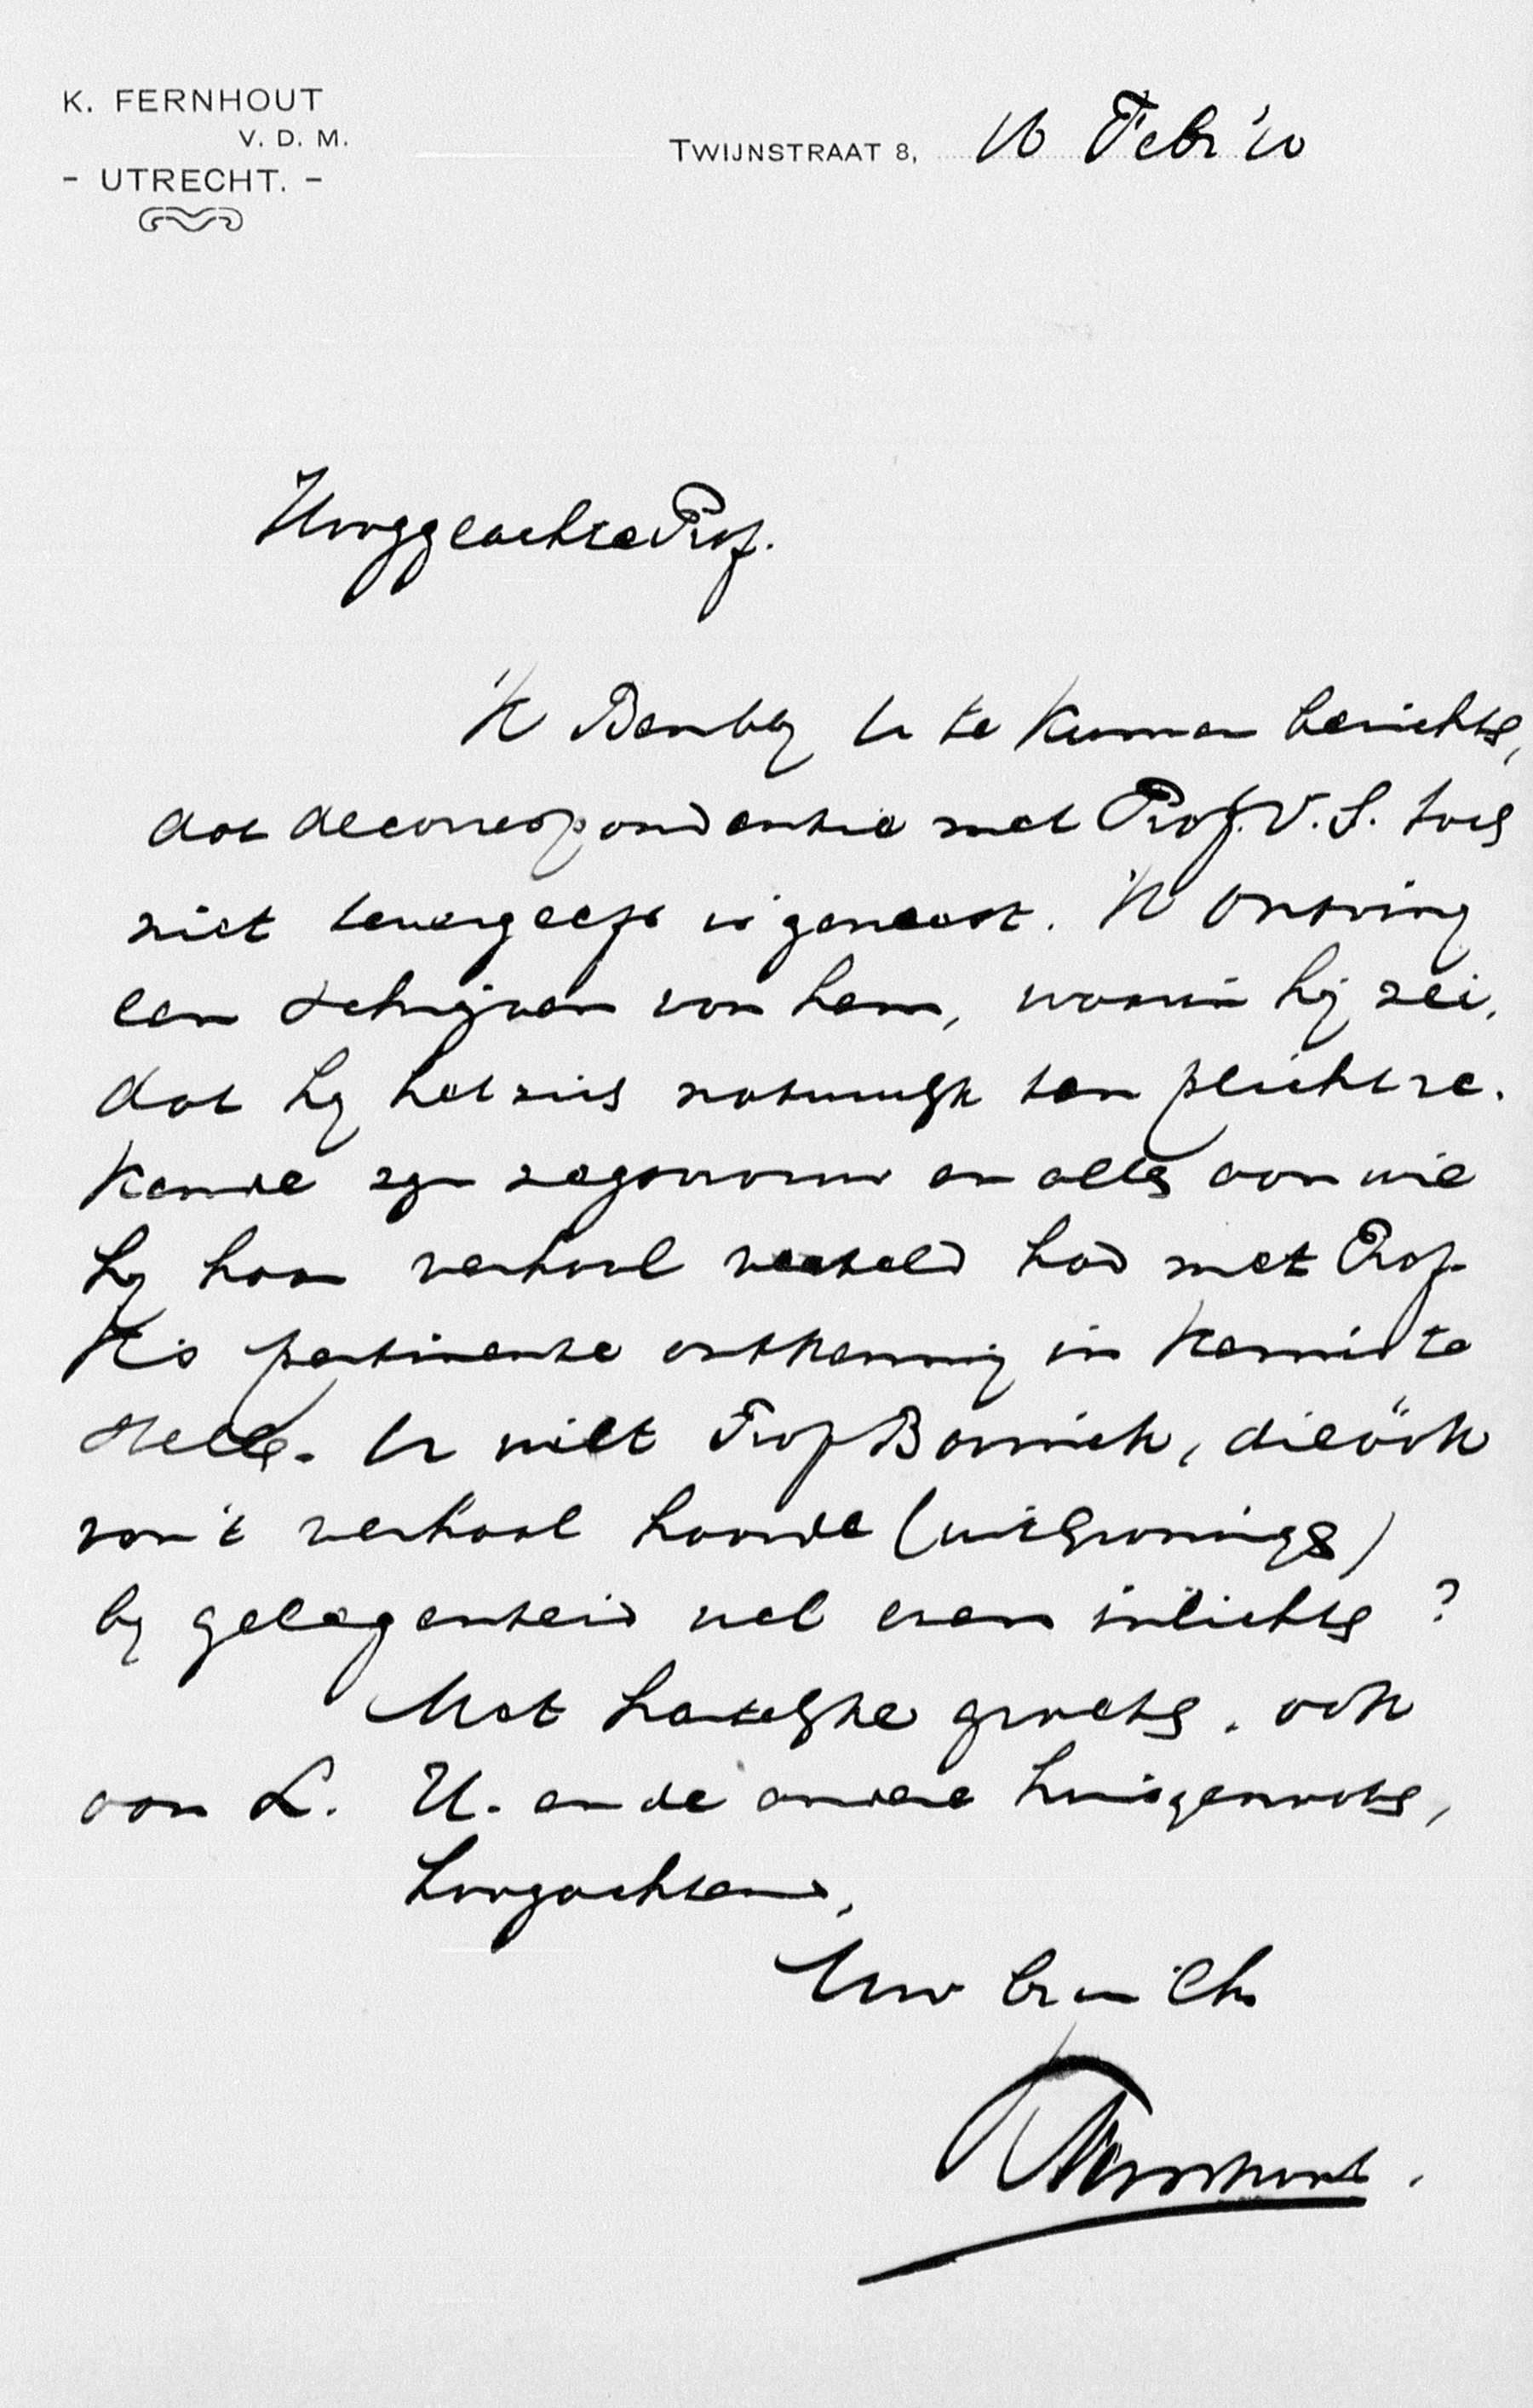 K. FERNHOUT
V. D. M.
- UTRECHT. -
TWIJNSTRAAT 8, 10 Febr '10
Hooggeachte Prof.
'k Ben blij U te kunnen berichten,
dat de correspondentie met Prof. V. S. toch
niet tevergeefs is geweest. 'k Ontving
een schrijven van hem, waarin hij zei,
dat hij het zich natuurlijk ten plicht re-
kende zijn zegsman en allen aan wie
hij haar verhaal verteld had met Prof.
K's pertinente ontkenning in kennis te
stellen. U wilt Prof Bavinck, die óók
van 't verhaal hoorde (uit Groningen)
bij gelegenheid wel even inlichten?
Met hartelijke groeten, ook
aan L. U. en de andere huisgenooten,
hoogachtend,
Uw br in Chr
KFernhout.